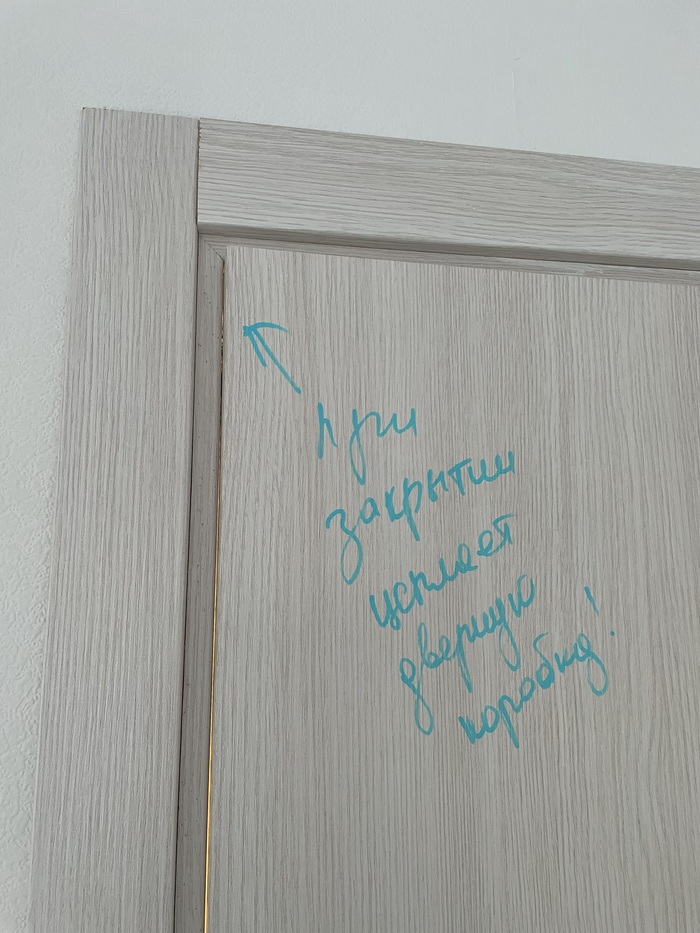 При
закрытии
цепляет
дверную
коробку!